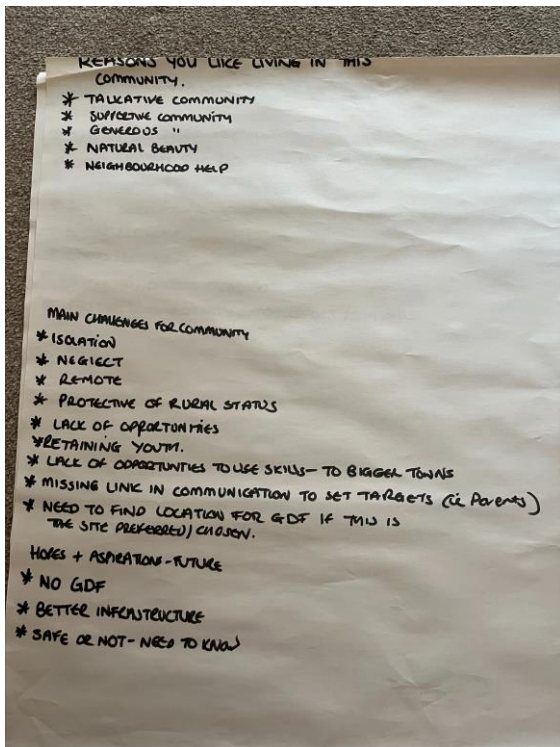 REASONS YOU LIKE LIVING IN THIS
COMMUNITY.
* TALKATIVE COMMUNITY
* SUPPORTIVE COMMUNITY
* GENEROUS "
* NATURAL BEAUTY
* NEIGHBOURHOOD HELP
MAIN CHALLENGES FOR COMMUNITY
* ISOLATION
* NEGLECT
* REMOTE
* PROTECTIVE OF RURAL STATUS
* LACK OF OPPORTUNITIES
* RETAINING YOUTH.
* LACK OF OPPORTUNTIES TO USE SKILLS - TO BIGGER TOWNS
* MISSING LINK IN COMMUNICATION TO SET TARGETS (ie Parents)
* NEED TO FIND LOCATION FOR GDF IF THIS IS
THE SITE PREFERRED/CHOSEN.
HOPES + ASPIRATIONS - FUTURE
* NO GDF
* BETTER INFRASTRUCTURE
* SAFE OR NOT - NEED TO KNOW